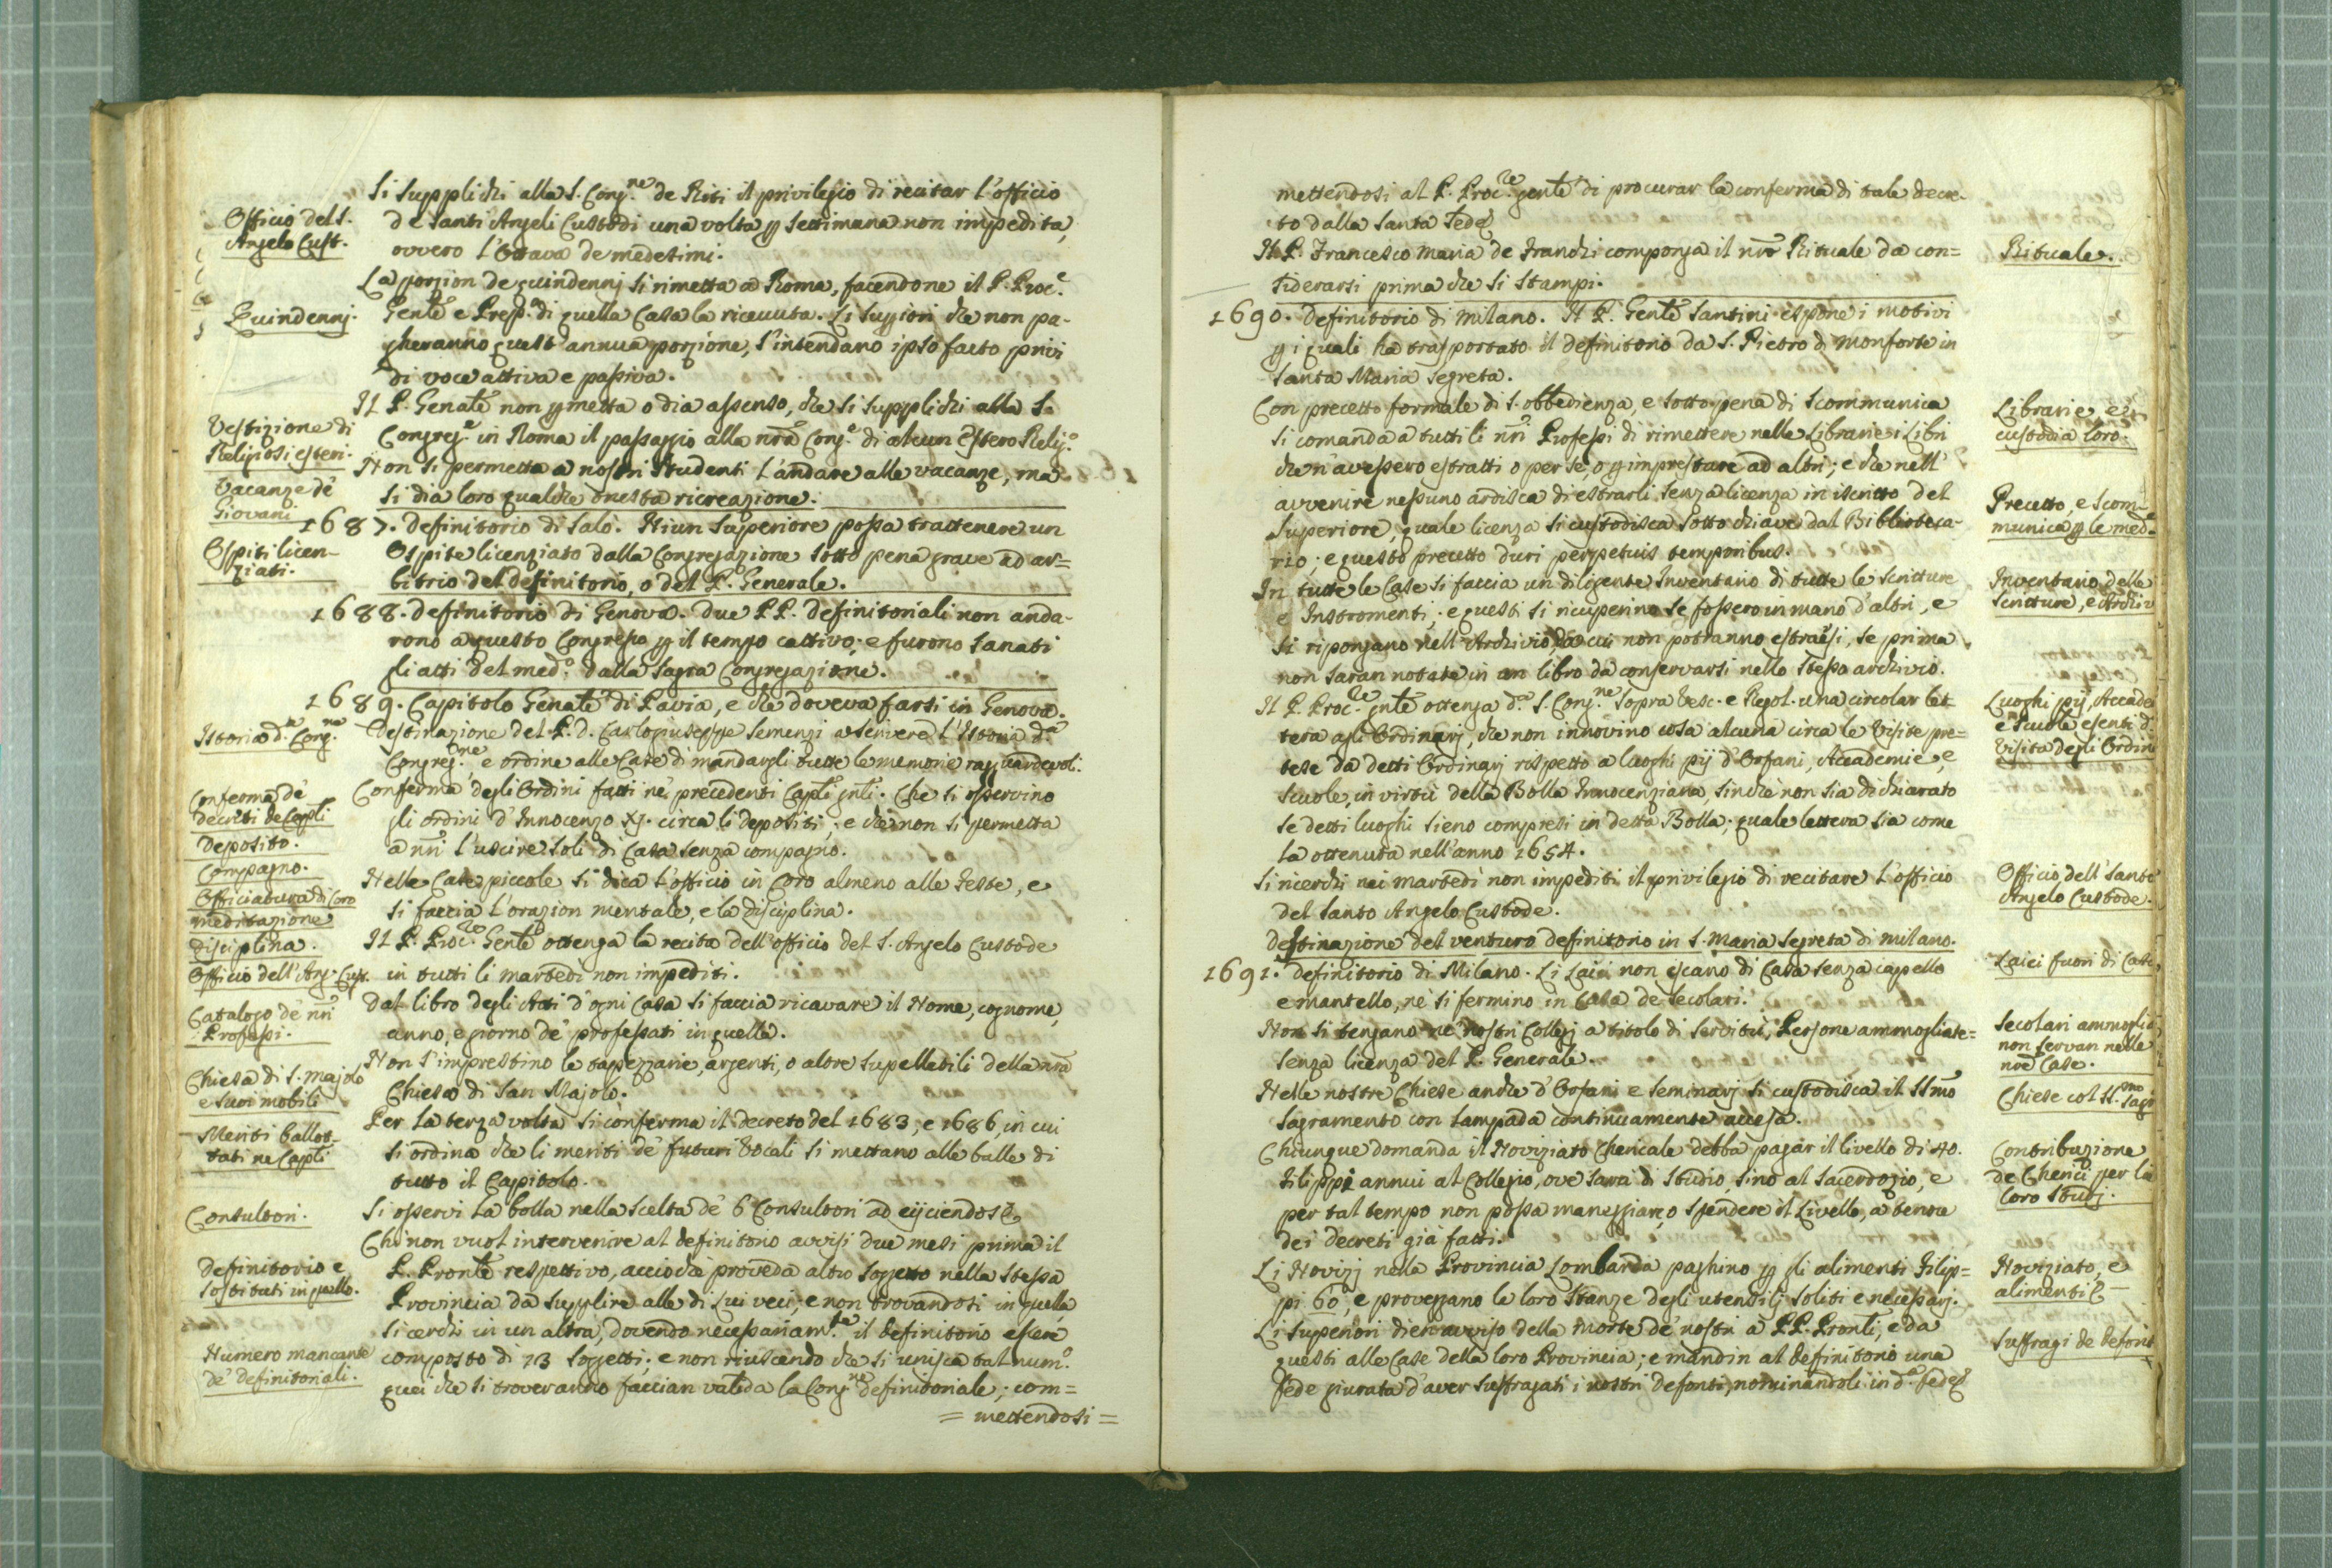 Si supplichi alla S. Cong.ne de Riti il privilegio di recitar l'officio
Officio del S.
Angelo Cust.
de Santi Angeli Custodi una volta p settimana non impedita,
ovvero l'Ottava de medesimi.
La porzion de quindennj si rimetta a Roma, facendone il P. Proc.e
Quindennj.
Gen̅le e Presp.a di quella Casa la ricevuta. Li suggiori che non pa-
gheranno quest'annua porzione, s'intendano ipso facto privi
di voce attiva e passiva.
Il P. Gen̅ale non pmetta o dia assenso, che si supplichi alla S.
Vestizione di
Religiosi esteri.
Congreg.e in Roma il passaggio alla nr̅a Cong.e di alcun estero Relig.o
Non si permetta a nostri Studenti l'andare alle vacanze, ma
Vacanze de'
Giovani
si dia loro qualche onesta ricreazione.
1687. Definitorio di Salò. Niun Superiore possa trattenere un
Ospiti licen-
ziati.
Ospite licenziato dalla Congregazione sotto pena grave ad ar=
bitrio del definitorio, o del P. Generale.
1688. Definitorio di Genova. Due PP. Definitoriali non anda-
rono a questo Congresso p il tempo cattivo; e furono sanati
gli atti del med.o dalla Sagra Congregazione.
1689. Capitolo Gen̅ale di Pavia, e che doveva farsi in Genova.
Istoria d.la Cong.ne
Destinazione del P. D. Carlo Giuseppe Semenzi a scrivere l'Istoria d.a
Congreg.ne, e ordine alle Case di mandargli tutte le memorie ragguardevoli.
Conferma de'
decreti de Capli
Conferma degli Ordini fatti ne' precedenti Capli gn̅li. Che si osservino
gli ordini d'Innocenzo XJ. circa li depositi; e che non si permetta
Deposito.
a nr̅i l'uscire soli di Casa senza compagno.
Compagno.
Nelle Case piccole si dica l'officio in Coro almeno alle Feste, e
Officiatura di Coro
meditazione
si faccia l'orazion mentale, e la disciplina.
disciplina.
Il P. Proc.re Gen̅le ottenga la recita dell'officio del S. Angelo Custode
Officio dell'Ang. Cust.
in tutti li martedì non impediti.
Dal libro degli Atti d'ogni Casa si faccia ricavare il Nome, cognome,
Catalogo de' nr̅i
Professi.
anno, e giorno de' professati in quella.
Non s'imprestino le tapezzarie, argenti, o altre supelletili della nr̅a
Chiesa di S. Majolo
e suoi mobili
Chiesa di San Majolo.
Per la terza volta si conferma il decreto del 1683, e 1686, in cui
Meriti ballot-
tati ne Capli
si ordina che li meriti de' futuri Vocali si mettano alle balle di
tutto il Capitolo.
Consultori.
Si osservi la bolla nella scelta de' 6 Consultori ad eijciendos &
Chi non vuol intervenire al definitorio avvisi due mesi prima il
Definitorio e
sostituti in quello.
P. Pron̅le respettivo, acciò che proveda altro soggetto nella stessa
Provincia da supplire alle di lui veci; e non trovandosi in quella,
si cerchi in un altra, dovendo necessariam.te il definitorio essere
Numero mancante
de' Definitoriali.
composto di 13 soggetti; e non riuscendo che si unisca tal num.o
quei che si troveranno faccian valida la Cong.ne definitoriale; com=
= mettendosi =
mettendosi al P. Proc.re gen̅le di procurar la conferma di tale decre-
to dalla Santa Sede
Il P. Francesco Maria de Franchi componga il nr̅o Rituale da con=
Rituale.
siderarsi prima che si stampi.
1690. Definitorio di Milano. Il P. Gen̅le Santini espone i motivi
p i quali ha trasportato il definitorio da S. Pietro di Monforte in
Santa Maria Segreta.
Con precetto formale di S. obbedienza, e sotto pena di scommunica
Librarie, e
custodia loro.
si comanda a tutti li nr̅i Professi di rimettere nelle Librarie i Libri
che n'avessero estratti o per sè, o p imprestare ad altri; e che nell'
avvenire nessuno ardisca di estrarli senza licenza in iscritto del
Precetto, e scom-
munica p le med.e
Superiore, quale licenza si custodisca sotto chiave dal Biblioteca-
rio; e questo precetto duri perpetuis temporibus.
In tutte le Case si faccia un diligente Inventario di tutte le scritture
Inventario delle
scritture, e Archiv
e Instromenti; e questi si ricuperino se fossero in mano d'altri, e
si ripongano nell'Archivio, da cui non potranno estraersi, se prima
non saran notate in un libro da conservarsi nello stesso archivio.
Il P. Proc.re gn̅le ottenga d.a S. Cong.ne sopra Vesc. e Regol. una circolar let-
Luoghi pij, Accade
e Scuole esenti d
Visita degli Ordin
tera agli Ordinarj, che non innovino cosa alcuna circa le Visite pre=
tese da detti Ordinarj rispetto a luoghi pij d'Orfani, Accademie, e
Scuole, in virtù della Bolla Innocenziana, sinchè non sia dichiarato
se detti luoghi sieno compresi in detta Bolla; quale lettera sia come
la ottenuta nell'anno 1654.
Si ricerchi nei martedì non impediti il privilegio di recitare l'officio
Officio dell'Santo
Angelo Custode.
del Santo Angelo Custode.
Destinazione del venturo definitorio in S. Maria Segreta di Milano.
1691. Definitorio di Milano. Li Laici non escano di Casa senza capello
Laici fuori di Case,
e mantello, nè si fermino in Casa de secolari.
Non si tengano ne' nostri Collegj a titolo di servitù, Persone ammogliate=
Secolari ammoglia
non servan nelle
nr̅e Case.
senza licenza del P. Generale.
Nelle nostre Chiese anche d'Orfani e Seminarj si custodisca il SSm̅o
Chiese col SS.mo Sagr
Sagramento con lampada continuamente accesa.
Chiunque domanda il Noviziato Chericale debba pagar il livello di 40.
Contribuzione
de Cherici per li
loro Studj.
Filippi annui al Collegio, ove sarà di Studio, sino al Sacerdozio, e
per tal tempo non possa maneggiare, o spendere il Livello, a tenore
dei decreti già fatti.
Li Novizj nella Provincia Lombarda paghino p gli alimenti Filip=
Noviziato, e
alimenti &
pi 60, e provegano le loro stanze degli utensilj soliti e necessarj.
Li Superiori dien avviso della morte de' nostri a PP. Pron̅li, e da
Suffragi de Defont
questi alle Case della loro Provincia; e mandin al definitorio una
fede giurata d'aver suffragati i nostri defonti, nominandoli in d.a fede